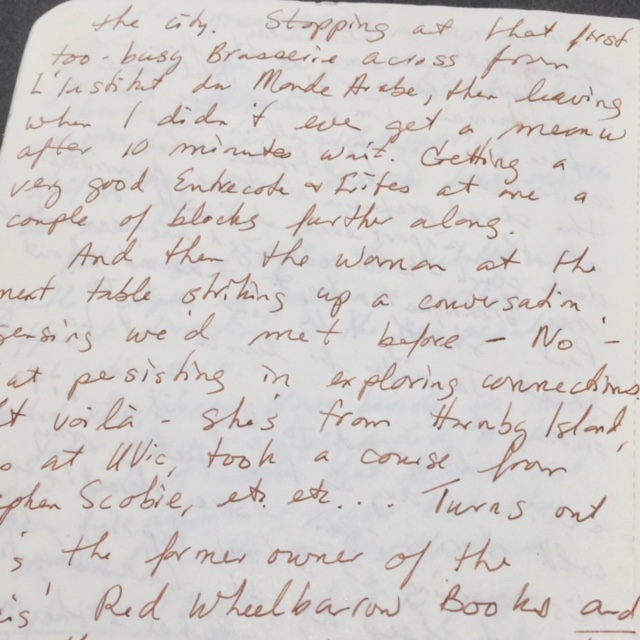 the city. Stopping at that first
too-busy Brasserie across from
L'Institut du Monde Arabe, then leaving
when I didn't even get a menu
after 10 minutes wait. Getting a
very good Entrecote & Frites at one a
couple of blocks further along.
And then the woman at the
next table striking up a conversation
sensing we'd met before – No –
at persisting in exploring connections
Et voilà – she's from Hornby Island,
at UVic, took a course from
Stephen Scobie, etc. etc... Turns out
the former owner of the
Red Wheelbarrow Books and